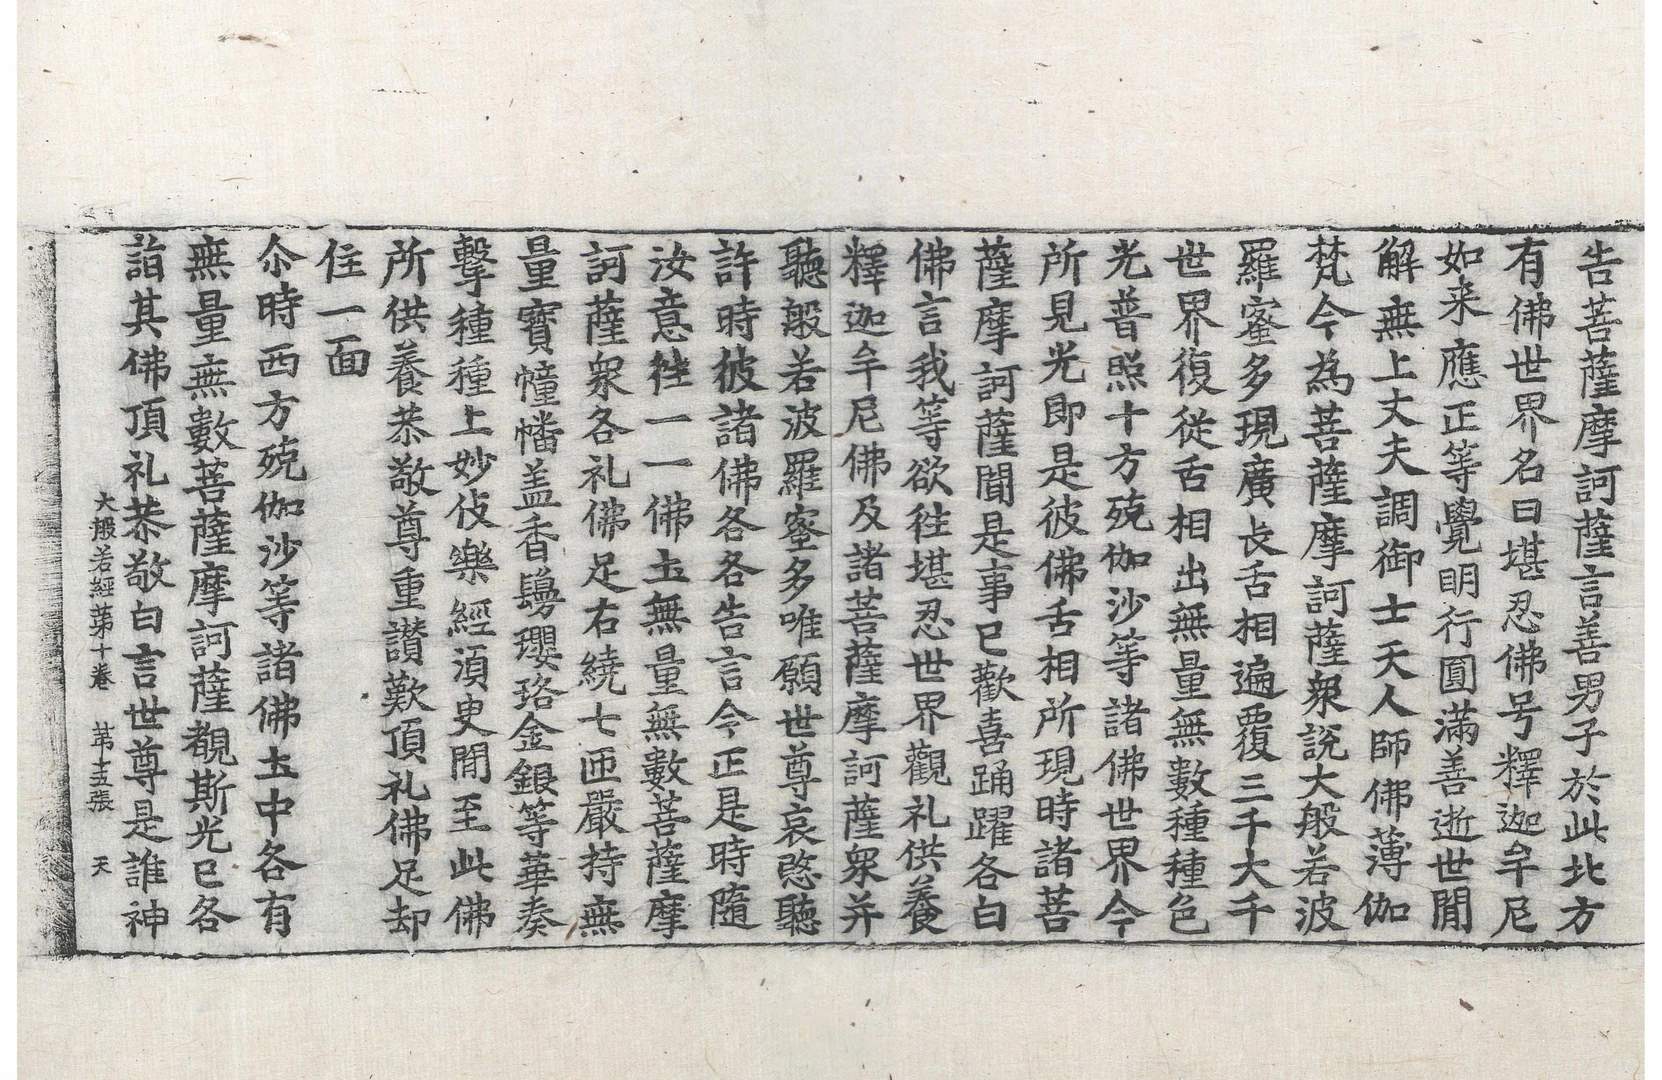 告菩薩摩訶薩言善男子於此北方
有佛世界名曰堪忍佛号釋迦牟尼
如来應正等覺明行圓滿善逝世閒
解無上丈夫調御士天人師佛薄伽
梵今為菩薩摩訶薩衆說大般若波
羅蜜多現廣長舌相遍覆三千大千
世界復從舌相出無量無數種種色
光普照十方殑伽沙等諸佛世界今
所見光即是彼佛舌相所現時諸菩
薩摩訶薩聞是事已歡喜踊躍各白
佛言我等欲往堪忍世界觀礼供養
釋迦牟尼佛及諸菩薩摩訶薩衆并
聽般若波羅蜜多唯願世尊哀愍聽
許時彼諸佛各各告言今正是時隨
汝意徃一一佛圡無量無數菩薩摩
訶薩衆各礼佛足右繞七匝嚴持無
量寶幢幡盖香鬘瓔珞金銀等華奏
擊種種上妙伎樂經湏臾閒至此佛
所供養恭敬尊重讃歎頂礼佛足却
住一面
尒時西方殑伽沙等諸佛圡中各有
無量無數菩薩摩訶薩覩斯光已各
詣其佛頂礼恭敬白言世尊是誰神
大般若經苐十卷 苐十五張 天